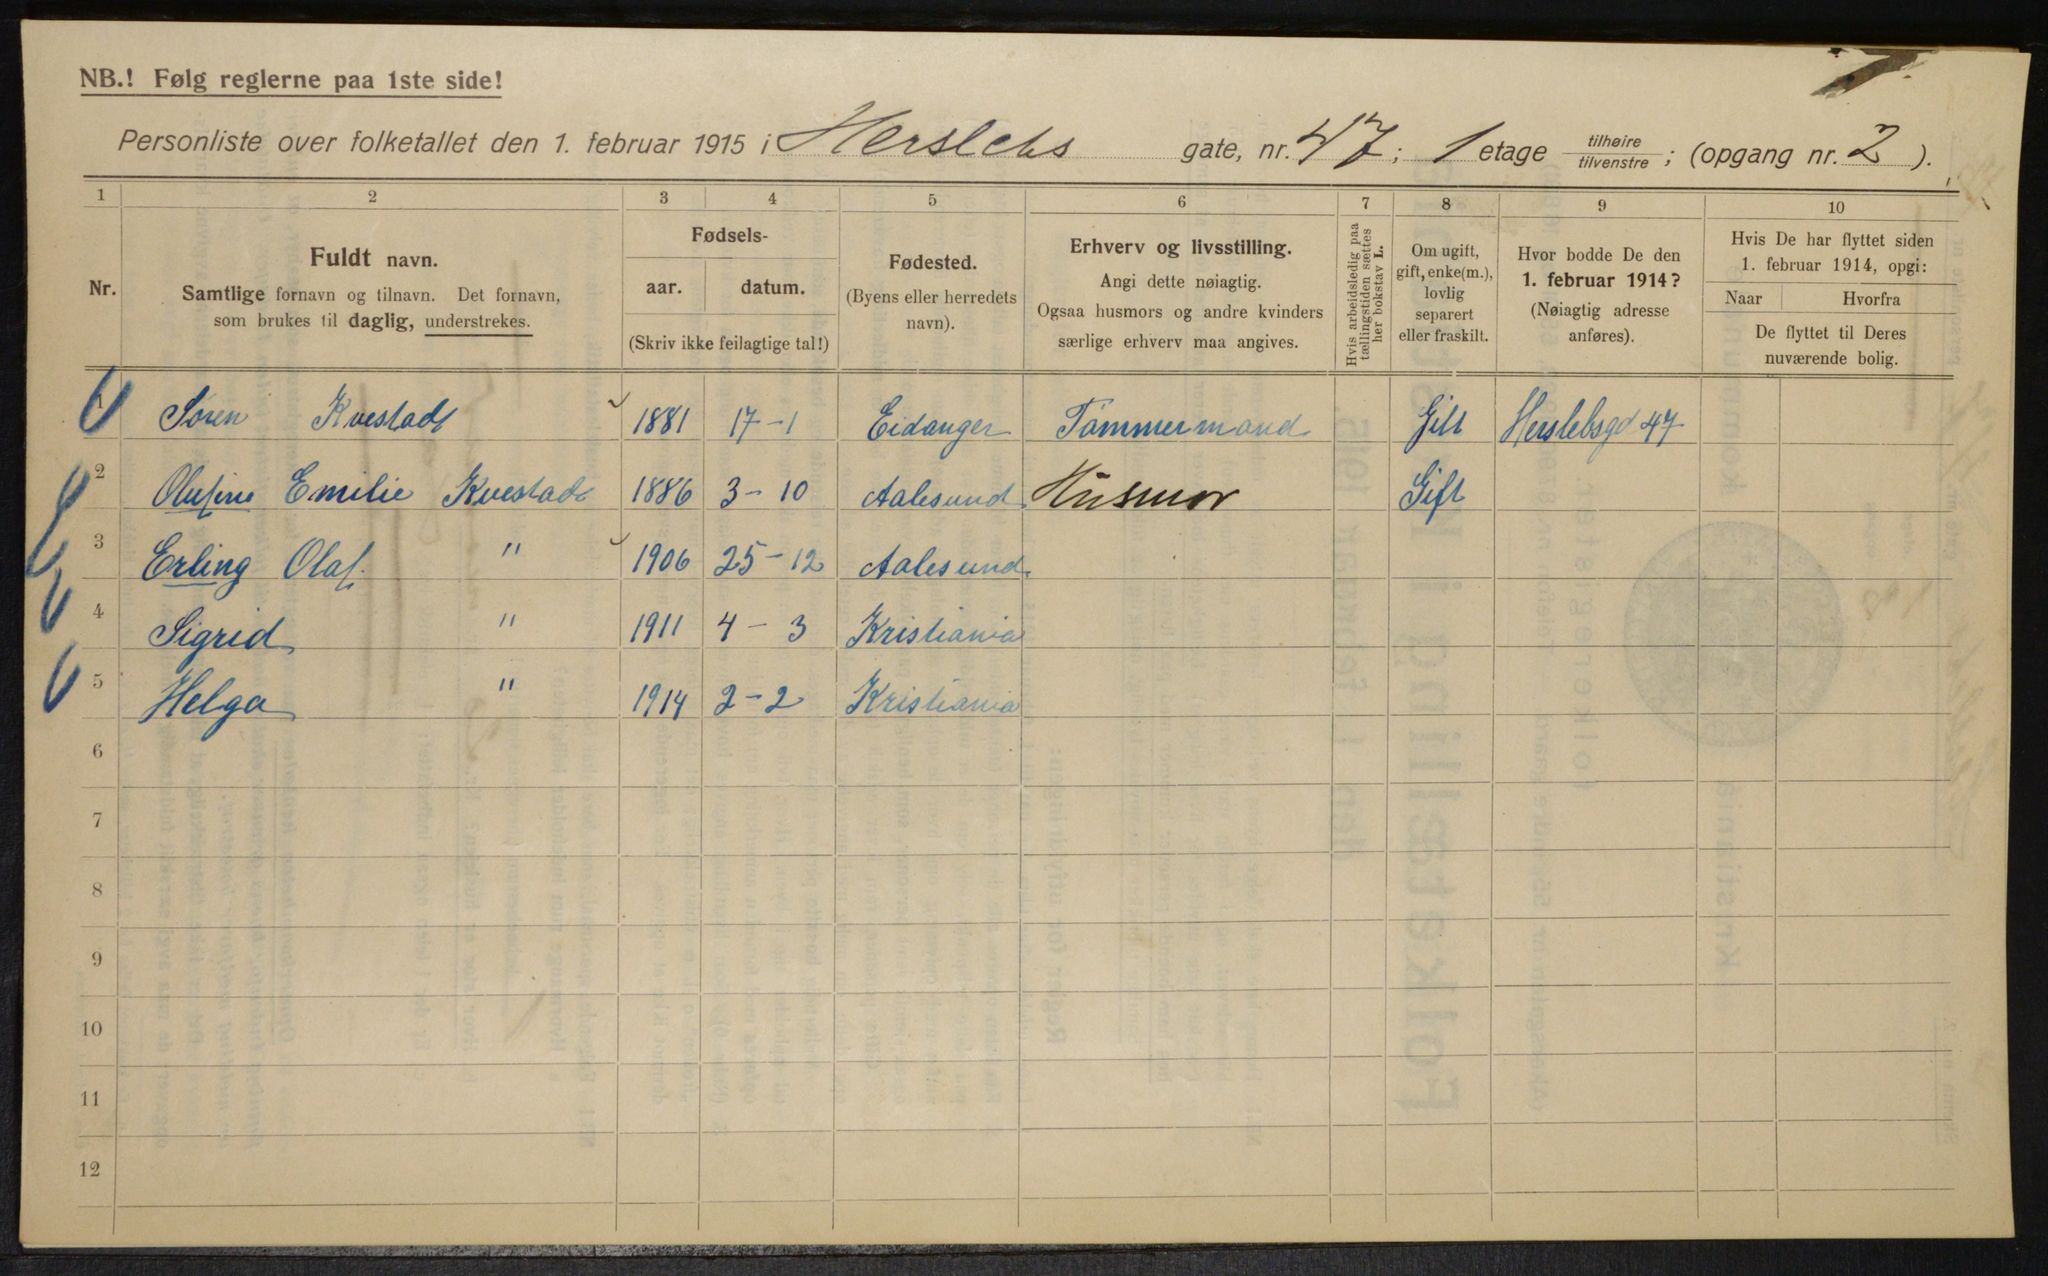 NB.! Følg reglerne paa 1ste side!
Personliste over folketallet den 1. februar 1915 i Herslebs gate, nr. 47; 1 etage tilhøire tilvenstre; (opgang nr. 2).
1 2 3 4 5 6 7 8 9 10
Nr.
Fuldt navn.
Samtlige fornavn og tilnavn. Det fornavn,
som brukes til daglig, understrekes.
Fødsels-
aar. datum.
(Skriv ikke feilagtige tal!)
Fødested.
(Byens eller herredets
navn).
Erhverv og livsstilling.
Angi dette nøiagtig.
Ogsaa husmors og andre kvinders
særlige erhverv maa angives.
Hvis arbeidsledig paa
tællingstiden sættes
her bokstav L.
Om ugift,
gift, enke(m.),
lovlig
separert
eller fraskilt.
Hvor bodde De den
1. februar 1914?
(Nøiagtig adresse
anføres).
Hvis De har flyttet siden
1. februar 1914, opgi:
Naar Hvorfra
De flyttet til Deres
nuværende bolig.
1 Søren Kvestad 1881 17-1 Eidanger Tømmermand Gift Herslebsgd 47
2 Olufine Emilie Kvestad 1886 3-10 Aalesund Husmor Gift
3 Erling Olaf " 1906 25-12 Aalesund
4 Sigrid " 1911 4-3 Kristiania
5 Helga " 1914 2-2 Kristiania
6
7
8
9
10
11
12